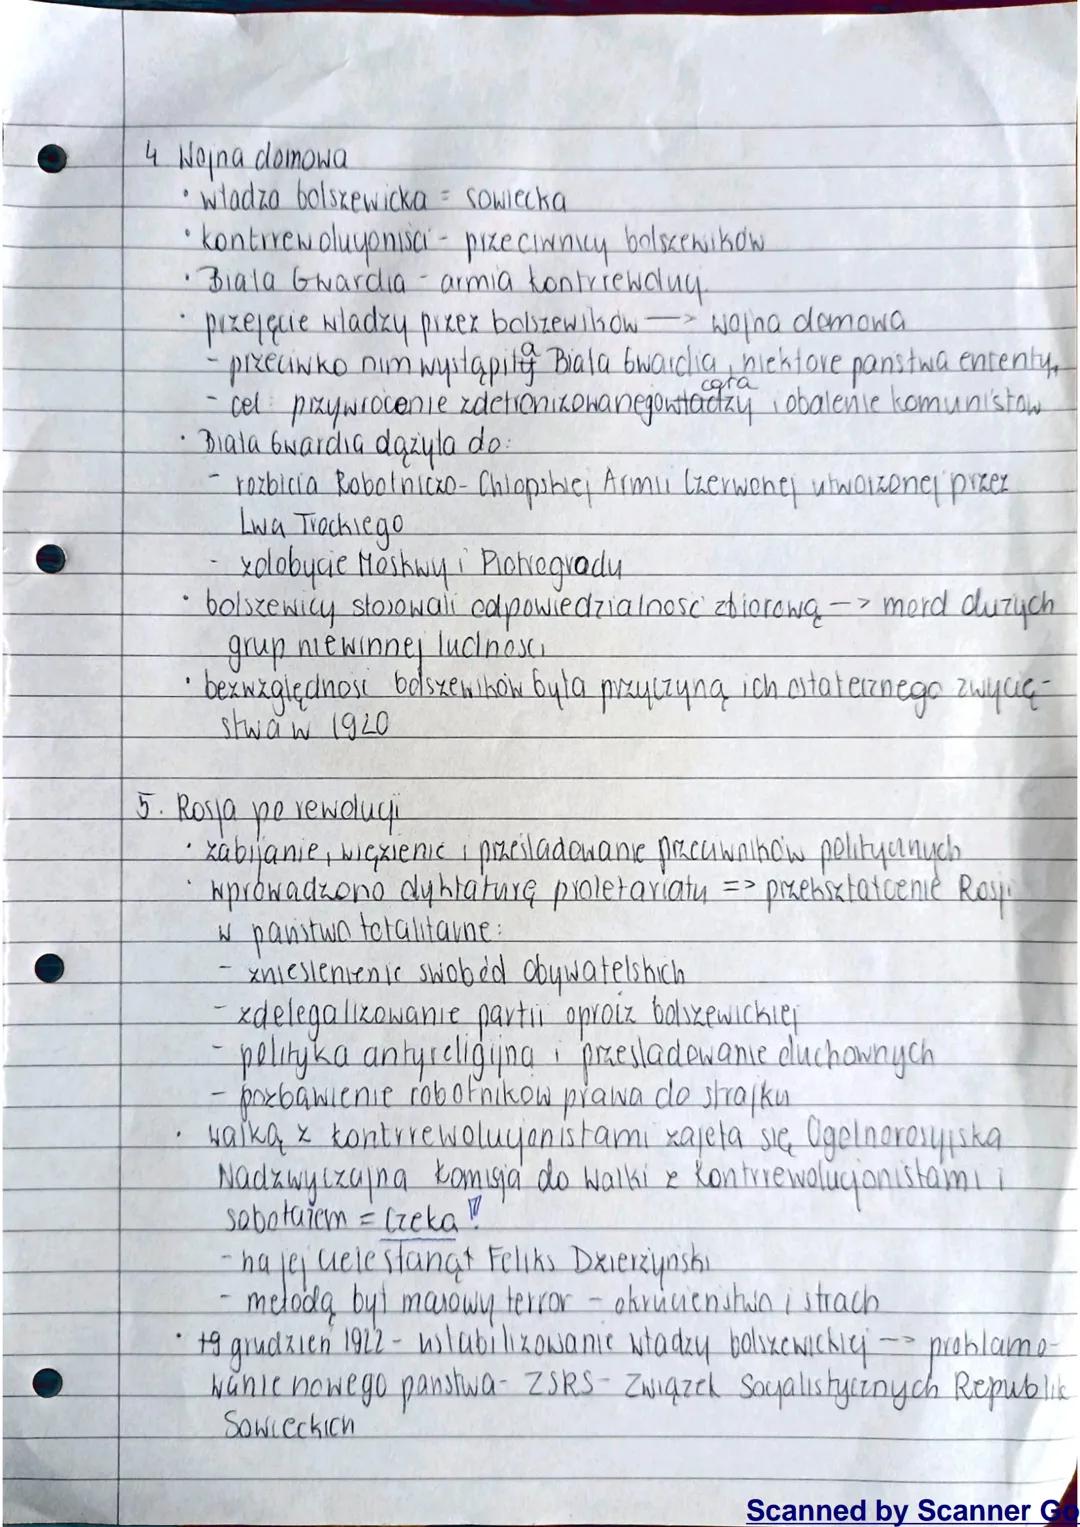 4 Wojna domowa
• władza bolszewicka = sowiecka
• kontrrewolucyoniści - przeciwnicy bolszewików
• Biała Gwardia - armia kontrrewolucyj.
• przejęcie władzy przez bolszewików —> wojna domowa
- przeciwko nim wystąpiła Biała Gwardia, niektóre państwa ententy,
- cel: przywrócenie zdetronizowanego cara i obalenie komunistów
• Biała Gwardia dążyła do:
- rozbicia Robotniczo-Chłopskiej Armii Czerwonej utworzonej przez
Lwa Trockiego
- zdobycie Moskwy i Piotrogradu
• bolszewicy stosowali odpowiedzialność zbiorową —> mord dużych
grup niewinnej ludności
• bezwzględność bolszewików była przyczyną ich ostatecznego zwycię-
stwa w 1920
5. Rosja po rewolucji
• zabijanie, więzienie i prześladowanie przeciwników politycznych
• wprowadzono dyktaturę proletariatu => przekształcenie Rosji
w państwo totalitarne:
- zniesienienie swobód obywatelskich
- zdelegalizowanie partii oprócz bolszewickiej
- polityka antyreligijna i prześladowanie duchownych
- pozbawienie robotników prawa do strajku
• walką z kontrrewolucjonistami zajęła się Ogólnorosyjska
Nadzwyczajna Komisja do Walki z Kontrrewolucjonistami i
sabotażem = Czeka !
- na jej czele stanął Feliks Dzierżyński
- metodą był masowy terror - okrucieństwo i strach
• grudzień 1922 - ustabilizowanie władzy bolszewickiej —> proklamo-
wanie nowego państwa - ZSRS - Związek Socjalistycznych Republik
Sowieckich
Scanned by Scanner Go